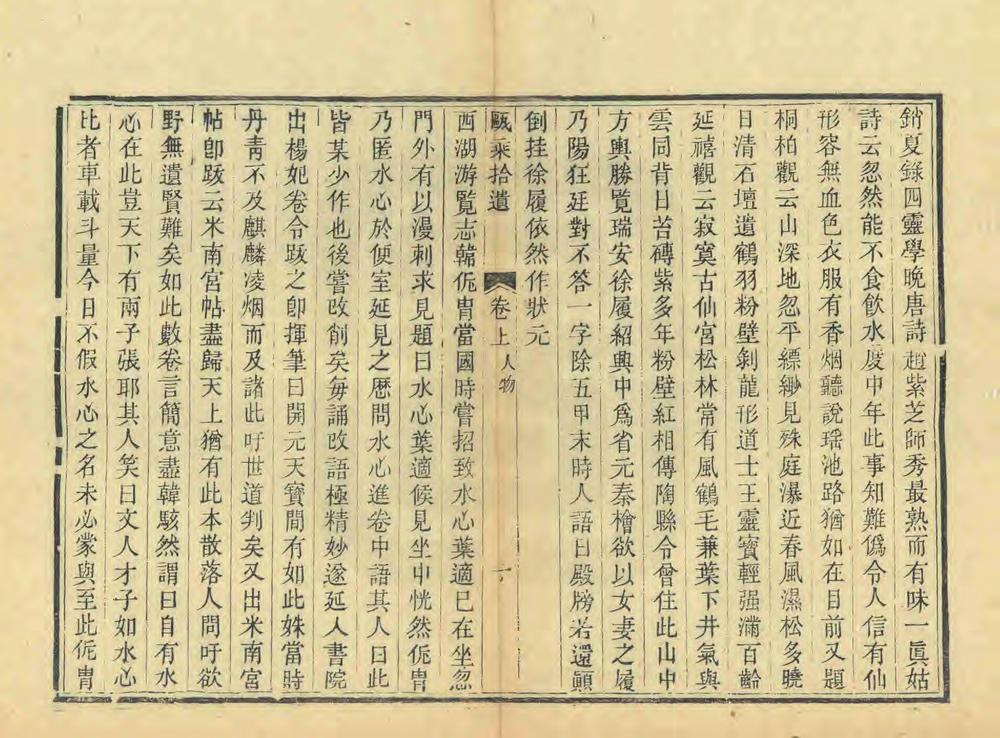 銷夏錄四靈學晚唐詩趙紫芝師秀最熟而有味一眞姑
詩云忽然能不食飲水度中年此事知難僞令人信有仙
形容無血色衣服有香烟聽說瑶池路猶如在目前又題
桐柏觀云山深地忽平縹緲見殊庭瀑近春風濕松多曉
日清石壇遺鶴羽粉壁剝龍形道士王靈寶輕强滿百齡
延禧觀云寂寞古仙宮松林常有風鶴毛兼葉下井氣與
雲同背日苔磚紫多年粉壁紅相傳陶縣令曾住此山中
方輿勝覽瑞安徐履紹興中爲省元秦檜欲以女妻之履
乃陽狂廷對不答一字除五甲末時人語曰殿牓若還顛
倒挂徐履依然作狀元
甌乘拾遺 卷上 人物
西湖游覽志韓侂冑當國時嘗招致水心葉適已在坐忽
門外有以漫刺求見題曰水心葉適候見坐中恍然侂冑
乃匿水心於便室延見之歷問水心進卷中語其人曰此
皆某少作也後嘗改削矣每誦改語極精妙遂延入書院
出楊妃卷令跋之卽揮筆曰開元天寶間有如此姝當時
丹青不及麒麟凌烟而及諸此吁世道判矣又出米南宮
帖卽跋云米南宮帖盡歸天上猶有此本散落人間吁欲
野無遺賢難矣如此數卷言簡意盡韓駭然謂曰自有水
心在此豈天下有兩子張耶其人笑曰文人才子如水心
比者車載斗量今日不假水心之名未必蒙與至此侂冑